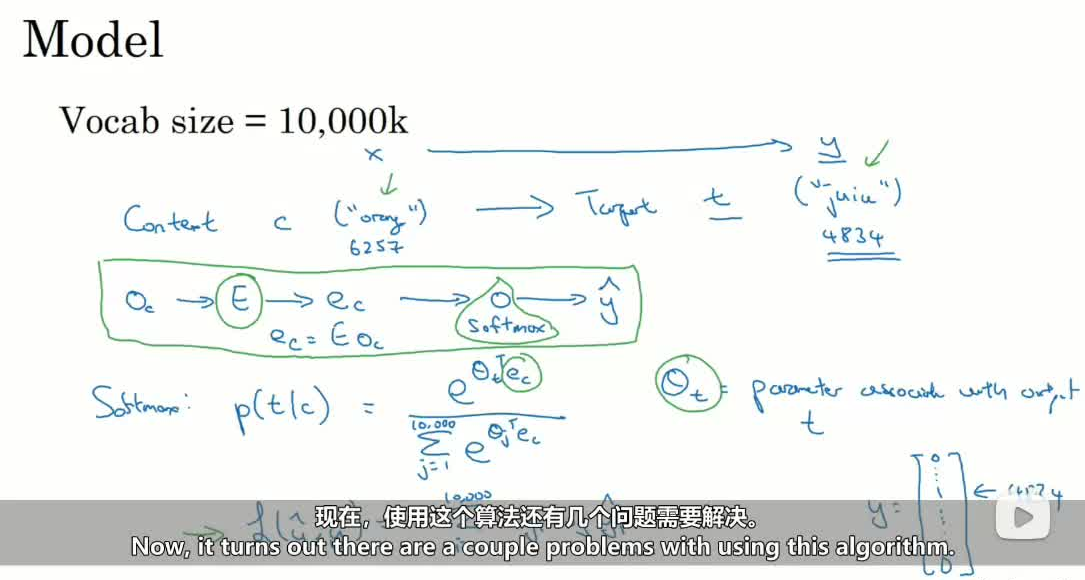 Model
Vocab size = 10,000k
x → y
Content c ("orang") → Target t ("juice")
6257 4834
O_c → E → e_c → o → ŷ
softmax
e_c = E O_c
Softmax: p(t|c) = e^{θ_t^T e_c} / Σ_{j=1}^{10,000} e^{θ_j^T e_c}
θ_t = parameter with output t
y = [0 ⋮ 1 ⋮ 0] ← 4834
10,000
现在，使用这个算法还有几个问题需要解决。
Now, it turns out there are a couple problems with using this algorithm.